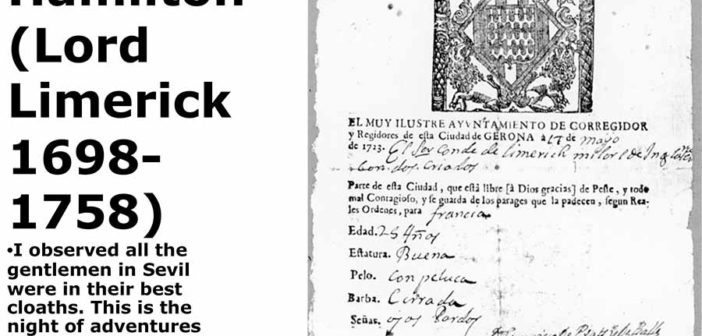 Hamilton
(Lord
Limerick
1698-
1758)
•I observed all the
gentlemen in Sevil
were in their best
cloaths. This is the
night of adventures
EL MUY ILUSTRE AYVNTAMIENTO DE CORREGIDOR
y Regidores de esta Ciudad de GERONA à 17 de mayo
de 1723. El Sor Conde de Limerick milord de Inglaterra
con dos criados
Parte de esta Ciudad, que està libre [à Dios gracias] de Peste, y todo
mal Contagioso, y se guarda de los parages que la padecen, segun Rea-
les Ordenes, para francia
Edad. 28 Años
Estatura. Buena
Pelo. con peluca
Barba. Cerrada
Señas. ojos Pardos